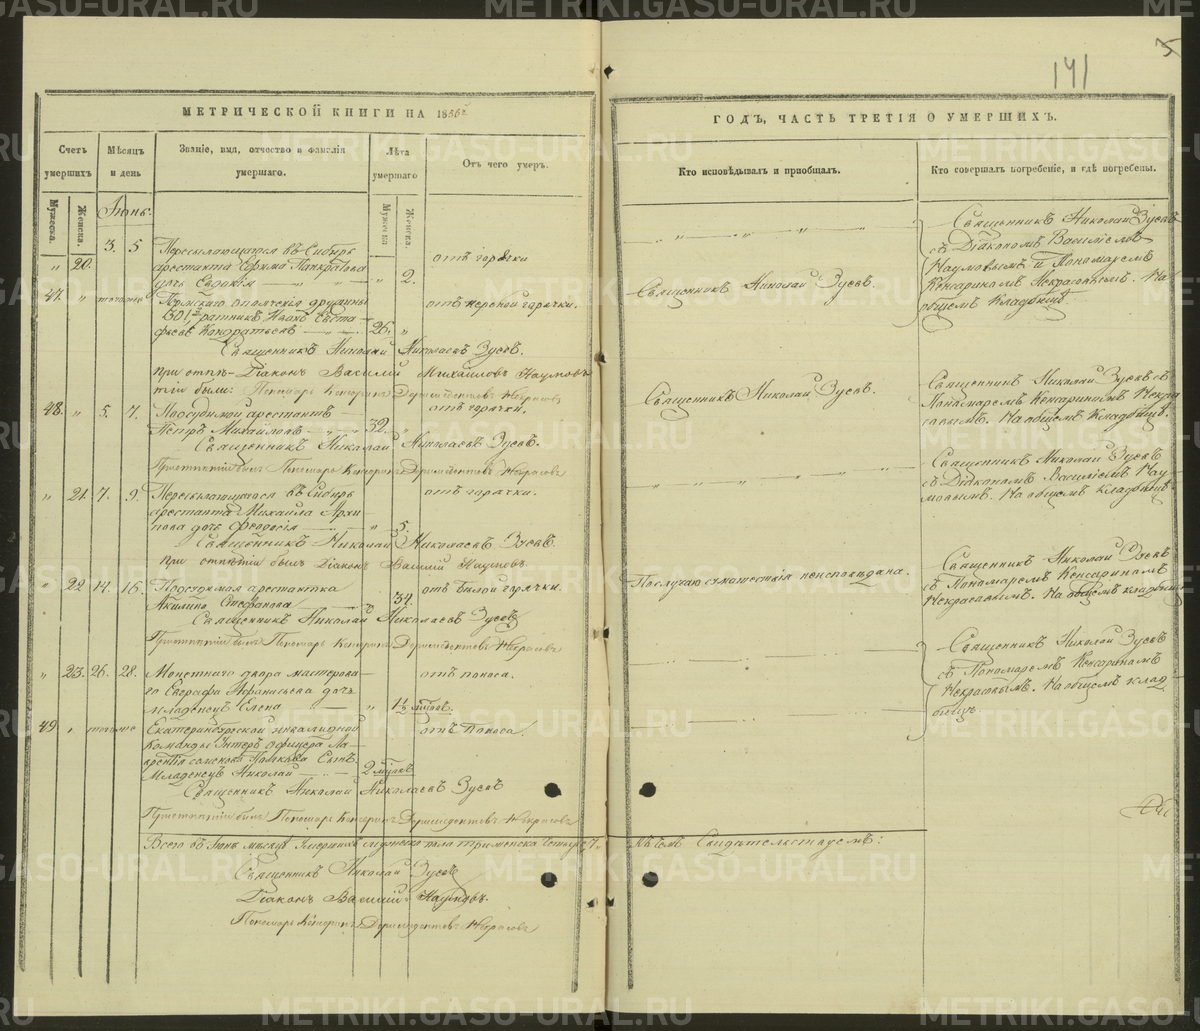 141
МЕТРИЧЕСКОЙ КНИГИ НА 1856й
ГОДЪ, ЧАСТЬ ТРЕТІЯ О УМЕРШИХЪ.
Счетъ умершихъ
Мѣсяцъ и день
Званіе, имя, отчество и фамилія умершаго.
Лѣта умершаго
Отъ чего умеръ.
Кто исповѣдывалъ и пріобщалъ.
Кто совершалъ погребеніе, и гдѣ погребены.
Мужеска.
Женска.
Мужеска
Женска.
Іюнь.
" 20. 3. 5
Пересылающагося въ Сибирь
арестанта Ефима Панкратова
дочь Евдокія " 2.
отъ горячки
Священникъ Николай Зуевъ
съ Діакономъ Василіемъ
Наумовымъ и Пономаремъ
Кенсариномъ Некрасовымъ. На
общемъ Кладбищѣ.
47. "
Пермскаго ополченія дружины
ратникъ Иванъ
Кондратьевъ 26. "
отъ нервной горячки.
Священникъ Николай Зуевъ.
Священникъ Николай Николаевъ Зуевъ.
При отпѣ- Діаконъ Василій Михайловъ Наумовъ
тіи были: Пономарь Кенсаринъ Дормидонтовъ Некрасовъ
48. " 5. 7.
Подсудимой арестантъ
Петръ Михайловъ 32. "
отъ горячки.
Священникъ Николай Зуевъ.
Священникъ Николай Зуевъ съ
Пономаремъ Кенсариномъ Некра
совымъ. На общемъ Кладбищѣ.
Священникъ Николай Николаевъ Зуевъ.
При отпѣтіи былъ Пономарь Кенсаринъ Дормидонтовъ Некрасовъ
" 21. 7. 9.
Пересылающагося въ Сибирь
арестанта Михаила Архи-
пова дочь Феодосія " 5.
отъ горячки.
Священникъ Николай Зуевъ
съ Діакономъ Василіемъ Нау-
мовымъ. На общемъ Кладбищѣ
Священникъ Николай Николаевъ Зуевъ.
При отпѣтіи былъ Діаконъ Василій Наумовъ.
" 22. 14. 16.
Подсудимая арестантка
Акилина Стефанова " 34.
отъ бѣлой горячки
По случаю сумашествія неисповѣдана.
Священникъ Николай Зуевъ
съ Пономаремъ Кенсариномъ
Некрасовымъ. На общемъ кладбищѣ
Священникъ Николай Николаевъ Зуевъ
При отпѣтіи былъ Пономарь Кенсаринъ Дормидонтовъ Некрасовъ
" 23. 26. 28.
Монетнаго двора мастерова-
го Евграфа Афанасьева дочь
младенецъ Елена " 1½
отъ поноса.
Священникъ Николай Зуевъ
съ Пономаремъ Кенсариномъ
Некрасовымъ. На общемъ клад-
бищѣ.
49 "
Екатеринбургской инвалидной
Команды Унтеръ офицера Ла-
врентія Сынъ
Младенецъ Николай 2
отъ Поноса.
Священникъ Николай Николаевъ Зуевъ
При отпѣтіи былъ Пономарь Кенсаринъ Дормидонтовъ Некрасовъ
Всего въ Іюнѣ мѣсяцѣ умершихъ мужеска пола три женска четыре
Въ семъ Свидѣтельствуемъ:
Священникъ Николай Зуевъ
Діаконъ Василій Наумовъ.
Пономарь Кенсаринъ Дормидонтовъ Некрасовъ
METRIKI.GASO-URAL.RU